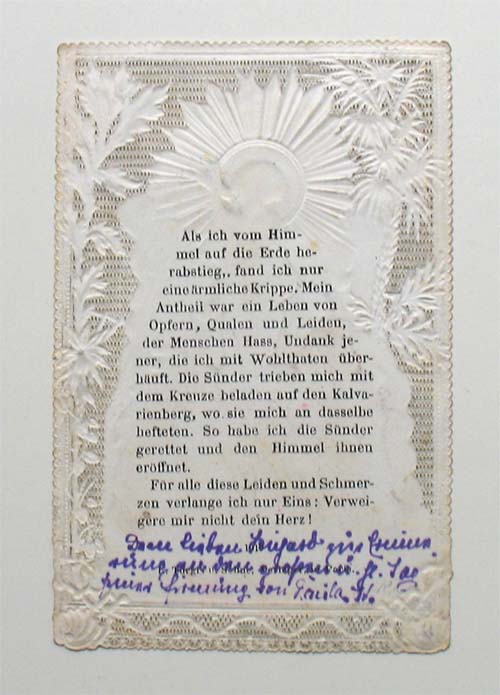 Als ich vom Him-
mel auf die Erde he-
rabstieg,, fand ich nur
eine ärmliche Krippe. Mein
Antheil war ein Leben von
Opfern, Qualen und Leiden,
der Menschen Hass, Undank je-
ner, die ich mit Wohlthaten über-
häuft. Die Sünder trieben mich mit
dem Kreuze beladen auf den Kalva-
rienberg, wo sie mich an dasselbe
hefteten. So habe ich die Sünder
gerettet und den Himmel ihnen
eröffnet.
Für alle diese Leiden und Schmer-
zen verlange ich nur Eins: Verwei-
gere mir nicht dein Herz!
Dem lieben zur Erinne
rung an den Tag
seiner Firmung von